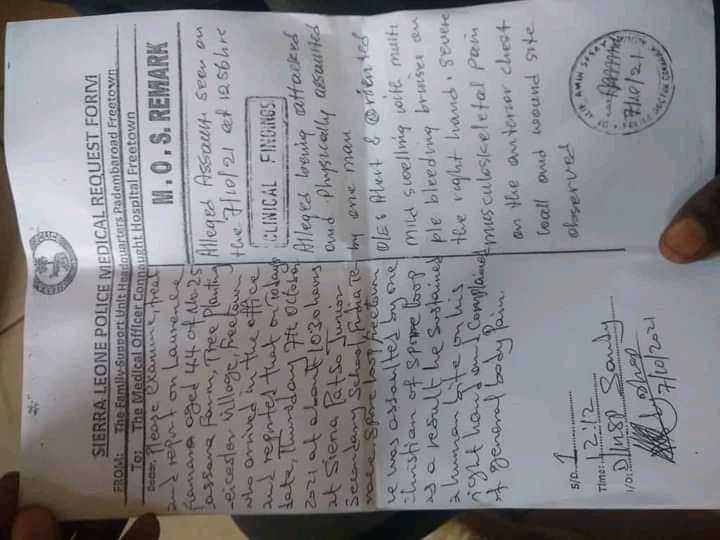 SIERRA LEONE POLICE MEDICAL REQUEST FORM
FROM: The Family Support Unit Headquarters Pademba road Freetown
To: The Medical Officer Connaught Hospital Freetown
Please examine, treat
and report on Laurence
Kamara aged 44 of No 25
Cassava Farm, Tree Planting
Leicester Village, Freetown
who arrived in the office
and reported that on today's
date, Thursday 7th October
2021 at about 1030 hours
at Siena
Secondary School,
Spine loop Freetown
he was assaulted by one
Christian of Spine loop
as a result he sustained
a human bite on his
right hand and complained
of general body pain.
S/O: 1
Time: 12:12
I/O: D/Insp Sandy
7/10/2021
M.O.S. REMARK
Alleged Assault seen on
the 7/10/21 at 1256hrs
CLINICAL FINDINGS
Alleged being attacked
and Physically assaulted
by one man
O/E: Alert & Oriented
mild swelling with multi
ple bleeding bruises on
the right hand. severe
musculoskeletal pain
on the anterior chest
wall and wound site
observed
7/10/21